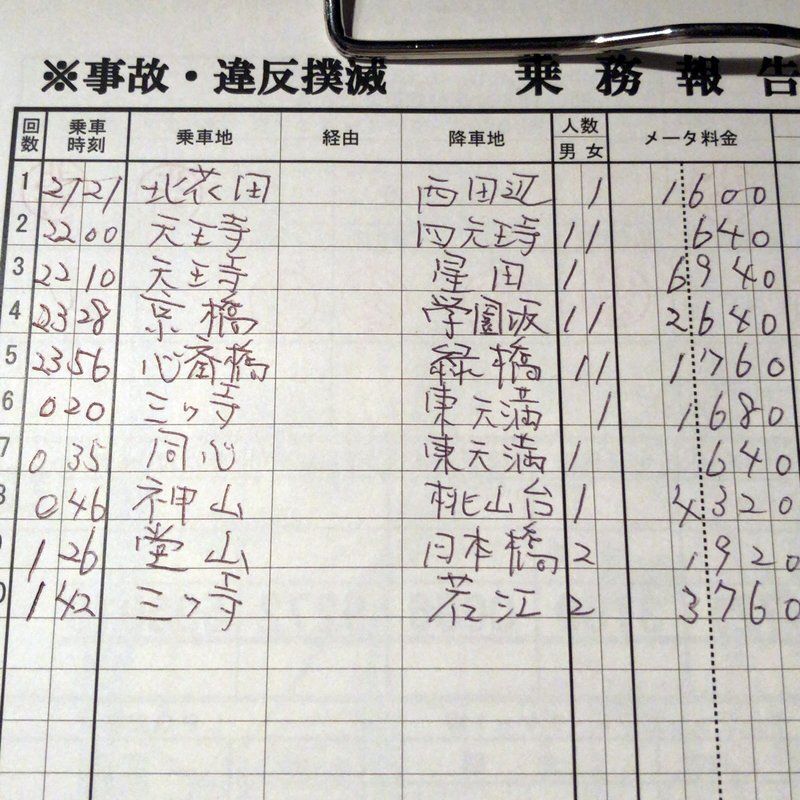 ※事故・違反撲滅 乗務報告
回数 乗車時刻 乗車地 経由 降車地 人数 男 女 メータ料金
1 2121 北花田 西田辺 1 1600
2 2200 天王寺 四天王寺 11 640
3 2210 天王寺 星田 1 6940
4 2328 京橋 学園坂 11 2640
5 2356 心斎橋 緑橋 11 1760
6 020 三ツ寺 東天満 1 1680
7 035 同心 東天満 1 640
8 046 神山 桃山台 1 4320
9 126 堂山 日本橋 2 1920
0 142 三ツ寺 若江 2 3760